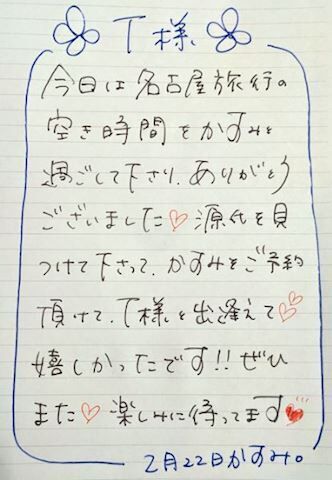 T様
今日は名古屋旅行の
空き時間をかすみと
過ごして下さり、ありがとう
ございました♡源氏を見
つけて下さって、かすみをご予約
頂けて、T様と出逢えて♡♡
嬉しかったです!!ぜひ
また♡楽しみに待ってます♥
2月22日かすみ。